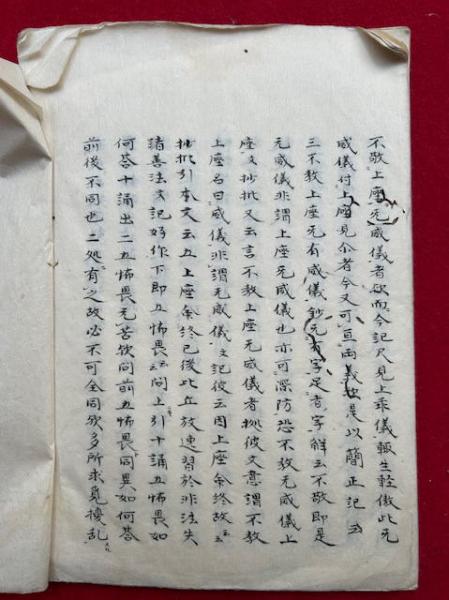 不敬上座无威儀者欲而今記尺見上乖儀輙生軽傲此无
威儀付上座見尒者今又可亘両義故是以簡正記云
三不敬上座无有威儀鈔无有字足者字解云不敬即是
无威儀非謂上座无威儀也亦可深防恐不敬无威儀上
座文抄批又云言不敬上座无威儀者挑彼文意謂不敬
上座名曰威儀非謂无威儀文記彼云因上座命終故云云
抄批引本文云五上座命終已後比丘放逸習於非法失
諸善法文記好作下即五怖畏云云問上引十誦五怖畏如
何答十誦出二五怖畏无苦欤問前五怖畏同異如何答
前後不同也二処有之故必不可全同欤多所求覓擾乱